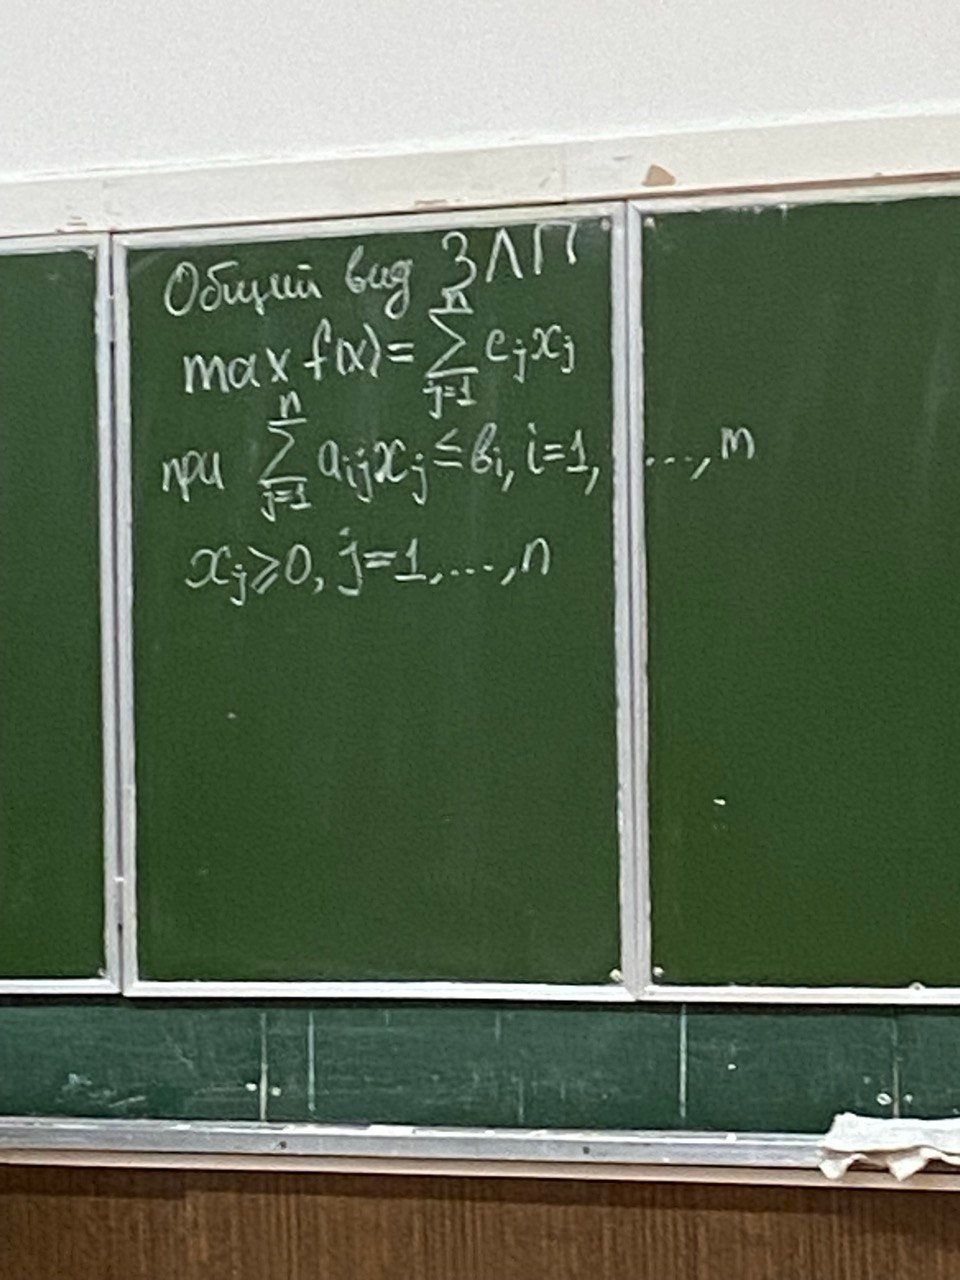 Общий вид ЗЛП
max f(x) = ∑_{j=1}^{n} c_j x_j
при ∑_{j=1}^{n} a_{ij} x_j ≤ b_i, i=1, ..., m
x_j ⩾ 0, j=1, ..., n